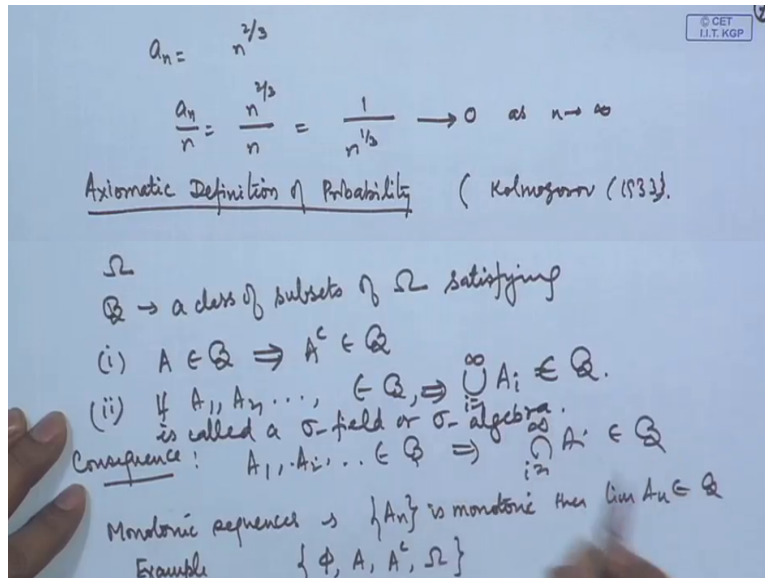 © CET
I.I.T. KGP
aₙ = n^{2/3}
aₙ/n = n^{2/3}/n = 1/n^{1/3} → 0 as n → ∞
Axiomatic Definition of Probability ( Kolmogorov (1933).
Ω
𝓑 → a class of subsets of Ω satisfying
(i) A ∈ 𝓑 ⇒ Aᶜ ∈ 𝓑
(ii) If A₁, A₂, ..., ∈ 𝓑, ⇒ ⋃_{i=1}^{∞} Aᵢ ∈ 𝓑.
is called a σ-field or σ-algebra.
Consequence : A₁, A₂, ... ∈ 𝓑 ⇒ ⋂_{i=1}^{∞} Aᵢ ∈ 𝓑
Monotonic sequences {Aₙ} is monotonic then lim Aₙ ∈ 𝓑
Example { ϕ, A, Aᶜ, Ω }